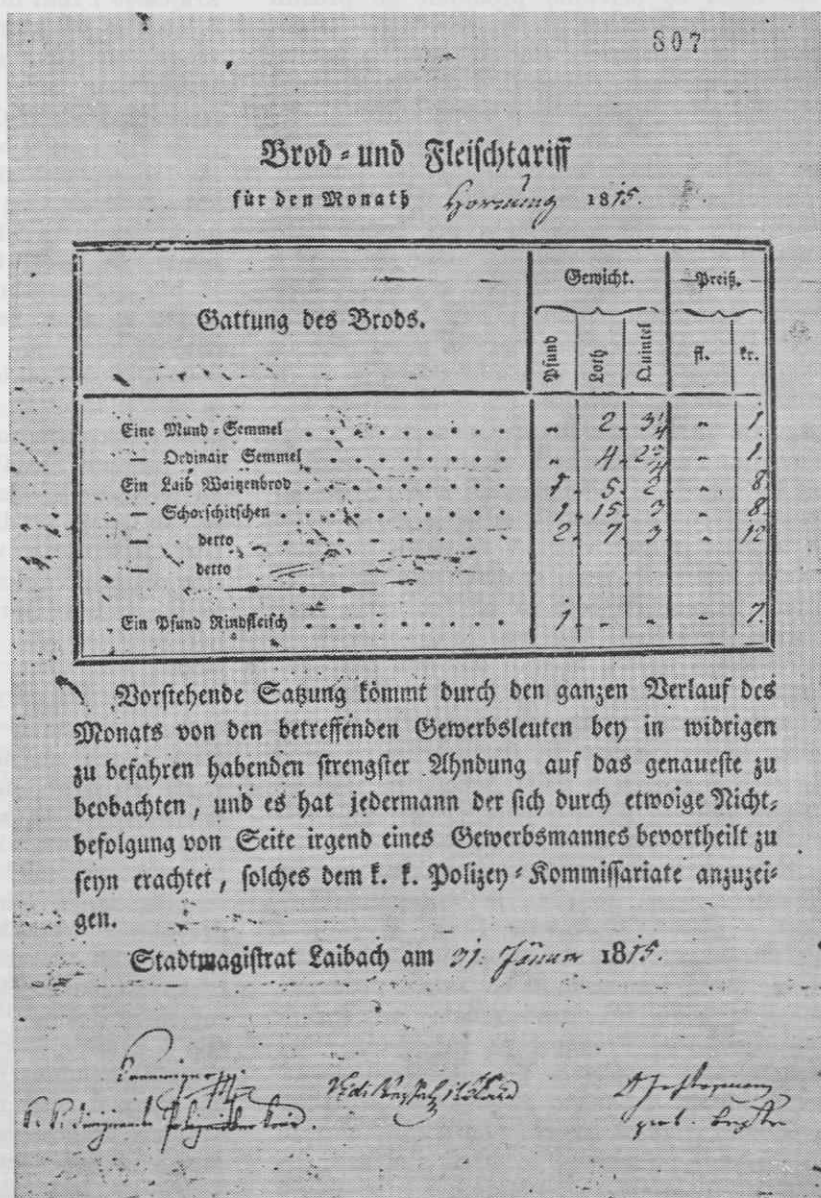 807
Brod = und Fleischtariff
für den Monath Hornung 1815.
Gattung des Brods. Gewicht. Preiß.
Pfund Loth Quintel fl. kr.
Eine Mund = Semmel . . . . . . . . . „ 2. 3/4 „ 1.
— Ordinair Semmel . . . . . . . . . „ 4. „ 1.
Ein Laib Waitzenbrod . . . . . . . . . 1. 5. 2. „ 8.
— Schorschitschen . . . . . . . . . 1. 15. 3 „ 8.
— detto . . . . . . . . . 2. 7. 3 „ 12
— detto
Ein Pfund Rindfleisch . . . . . . . . . 1. - - - 7.
Vorstehende Satzung kömmt durch den ganzen Verlauf des
Monats von den betreffenden Gewerbsleuten bey in widrigen
zu befahren habenden strengster Ahndung auf das genaueste zu
beobachten, und es hat jedermann der sich durch etwoige Nicht=
befolgung von Seite irgend eines Gewerbsmannes bevortheilt zu
seyn erachtet, solches dem k. k. Polizey = Kommissariate anzuzei=
gen.
Stadtmagistrat Laibach am 31. Jänner 1815.